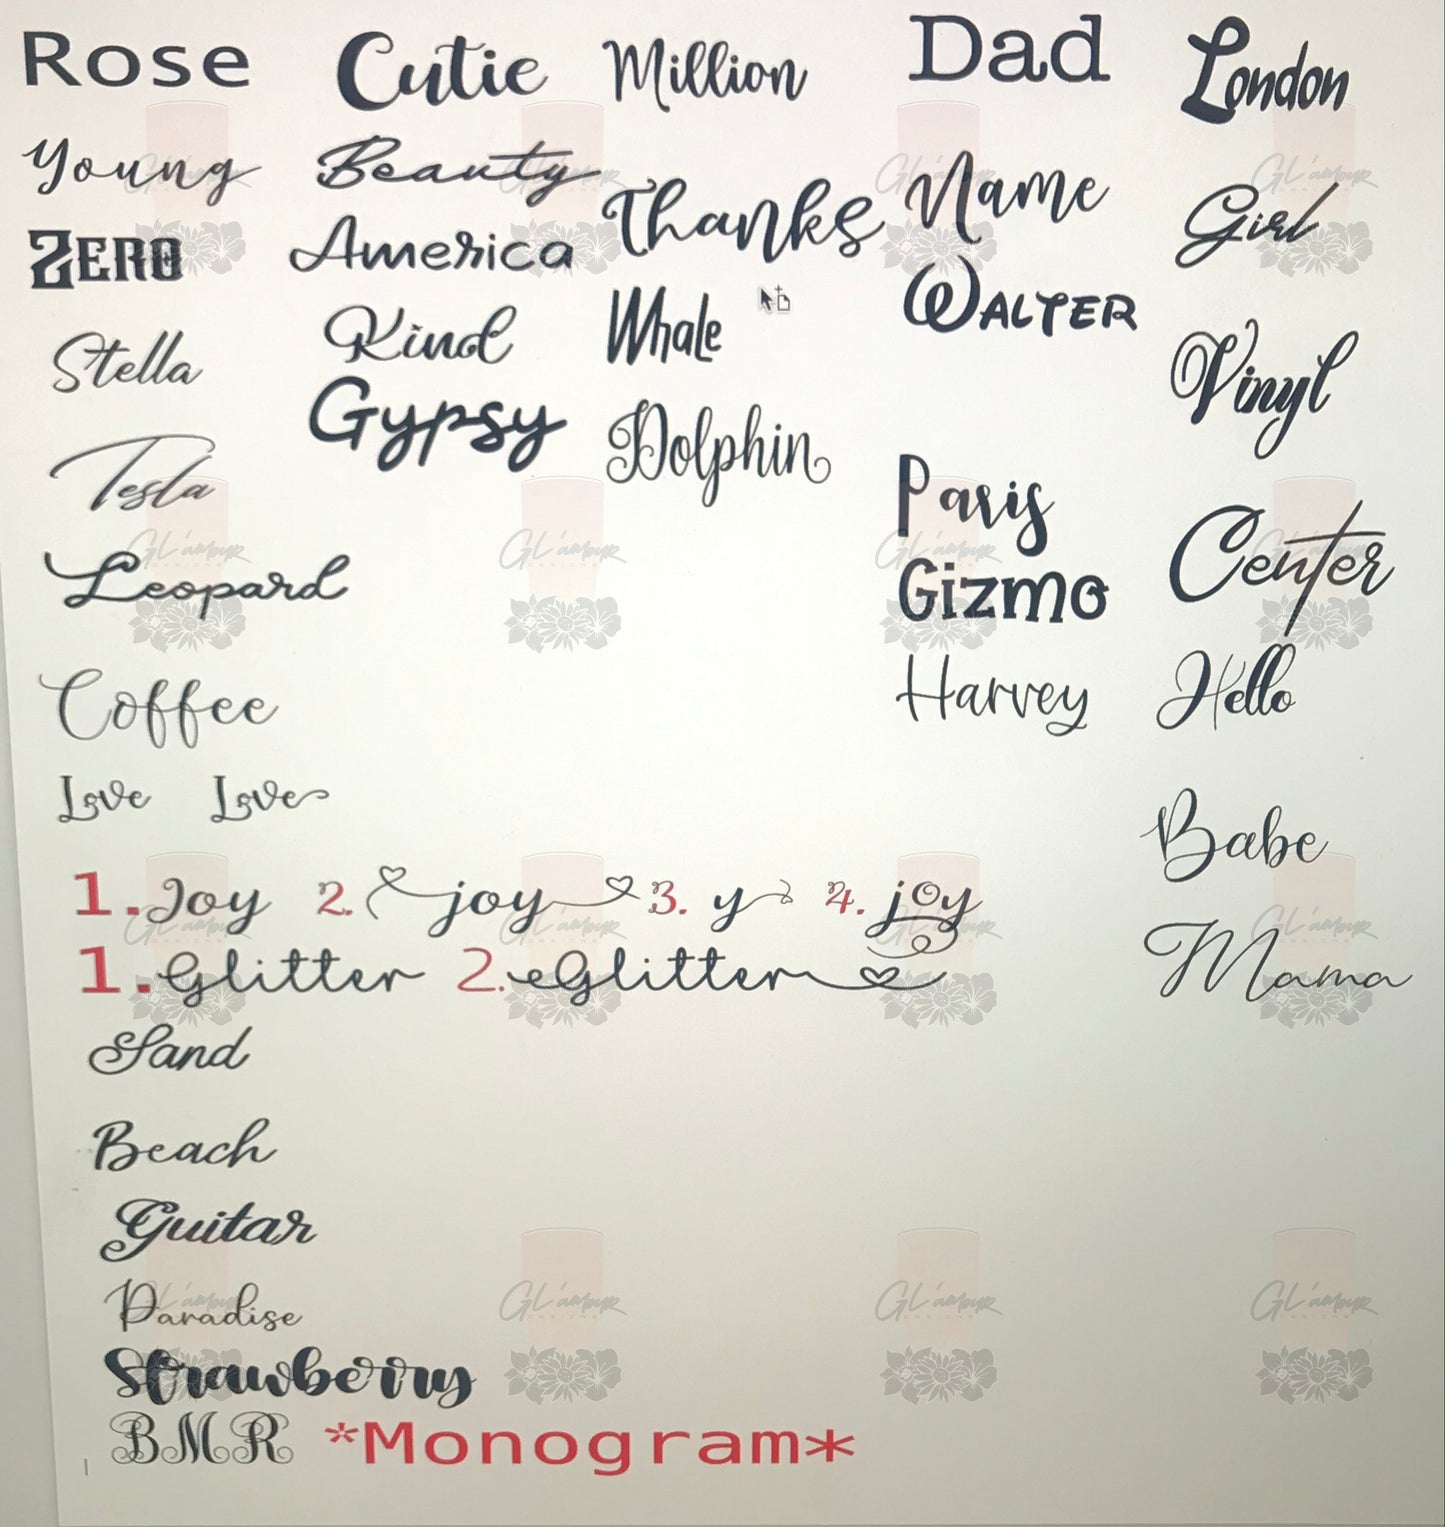 Rose
Cutie
Million
Dad
London
Young
Beauty
Thanks
Name
Girl
Zero
America
Whale
Walter
Vinyl
Stella
Kind
Gypsy
Dolphin
Tesla
Paris
Center
Leopard
Gizmo
Coffee
Harvey
Hello
Love Love
Babe
1. Joy 2. joy 3. y 4. joy
1. Glitter 2. Glitter
Mama
Sand
Beach
Guitar
Paradise
Strawberry
BMR *Monogram*
GL'amour
DESIGNS